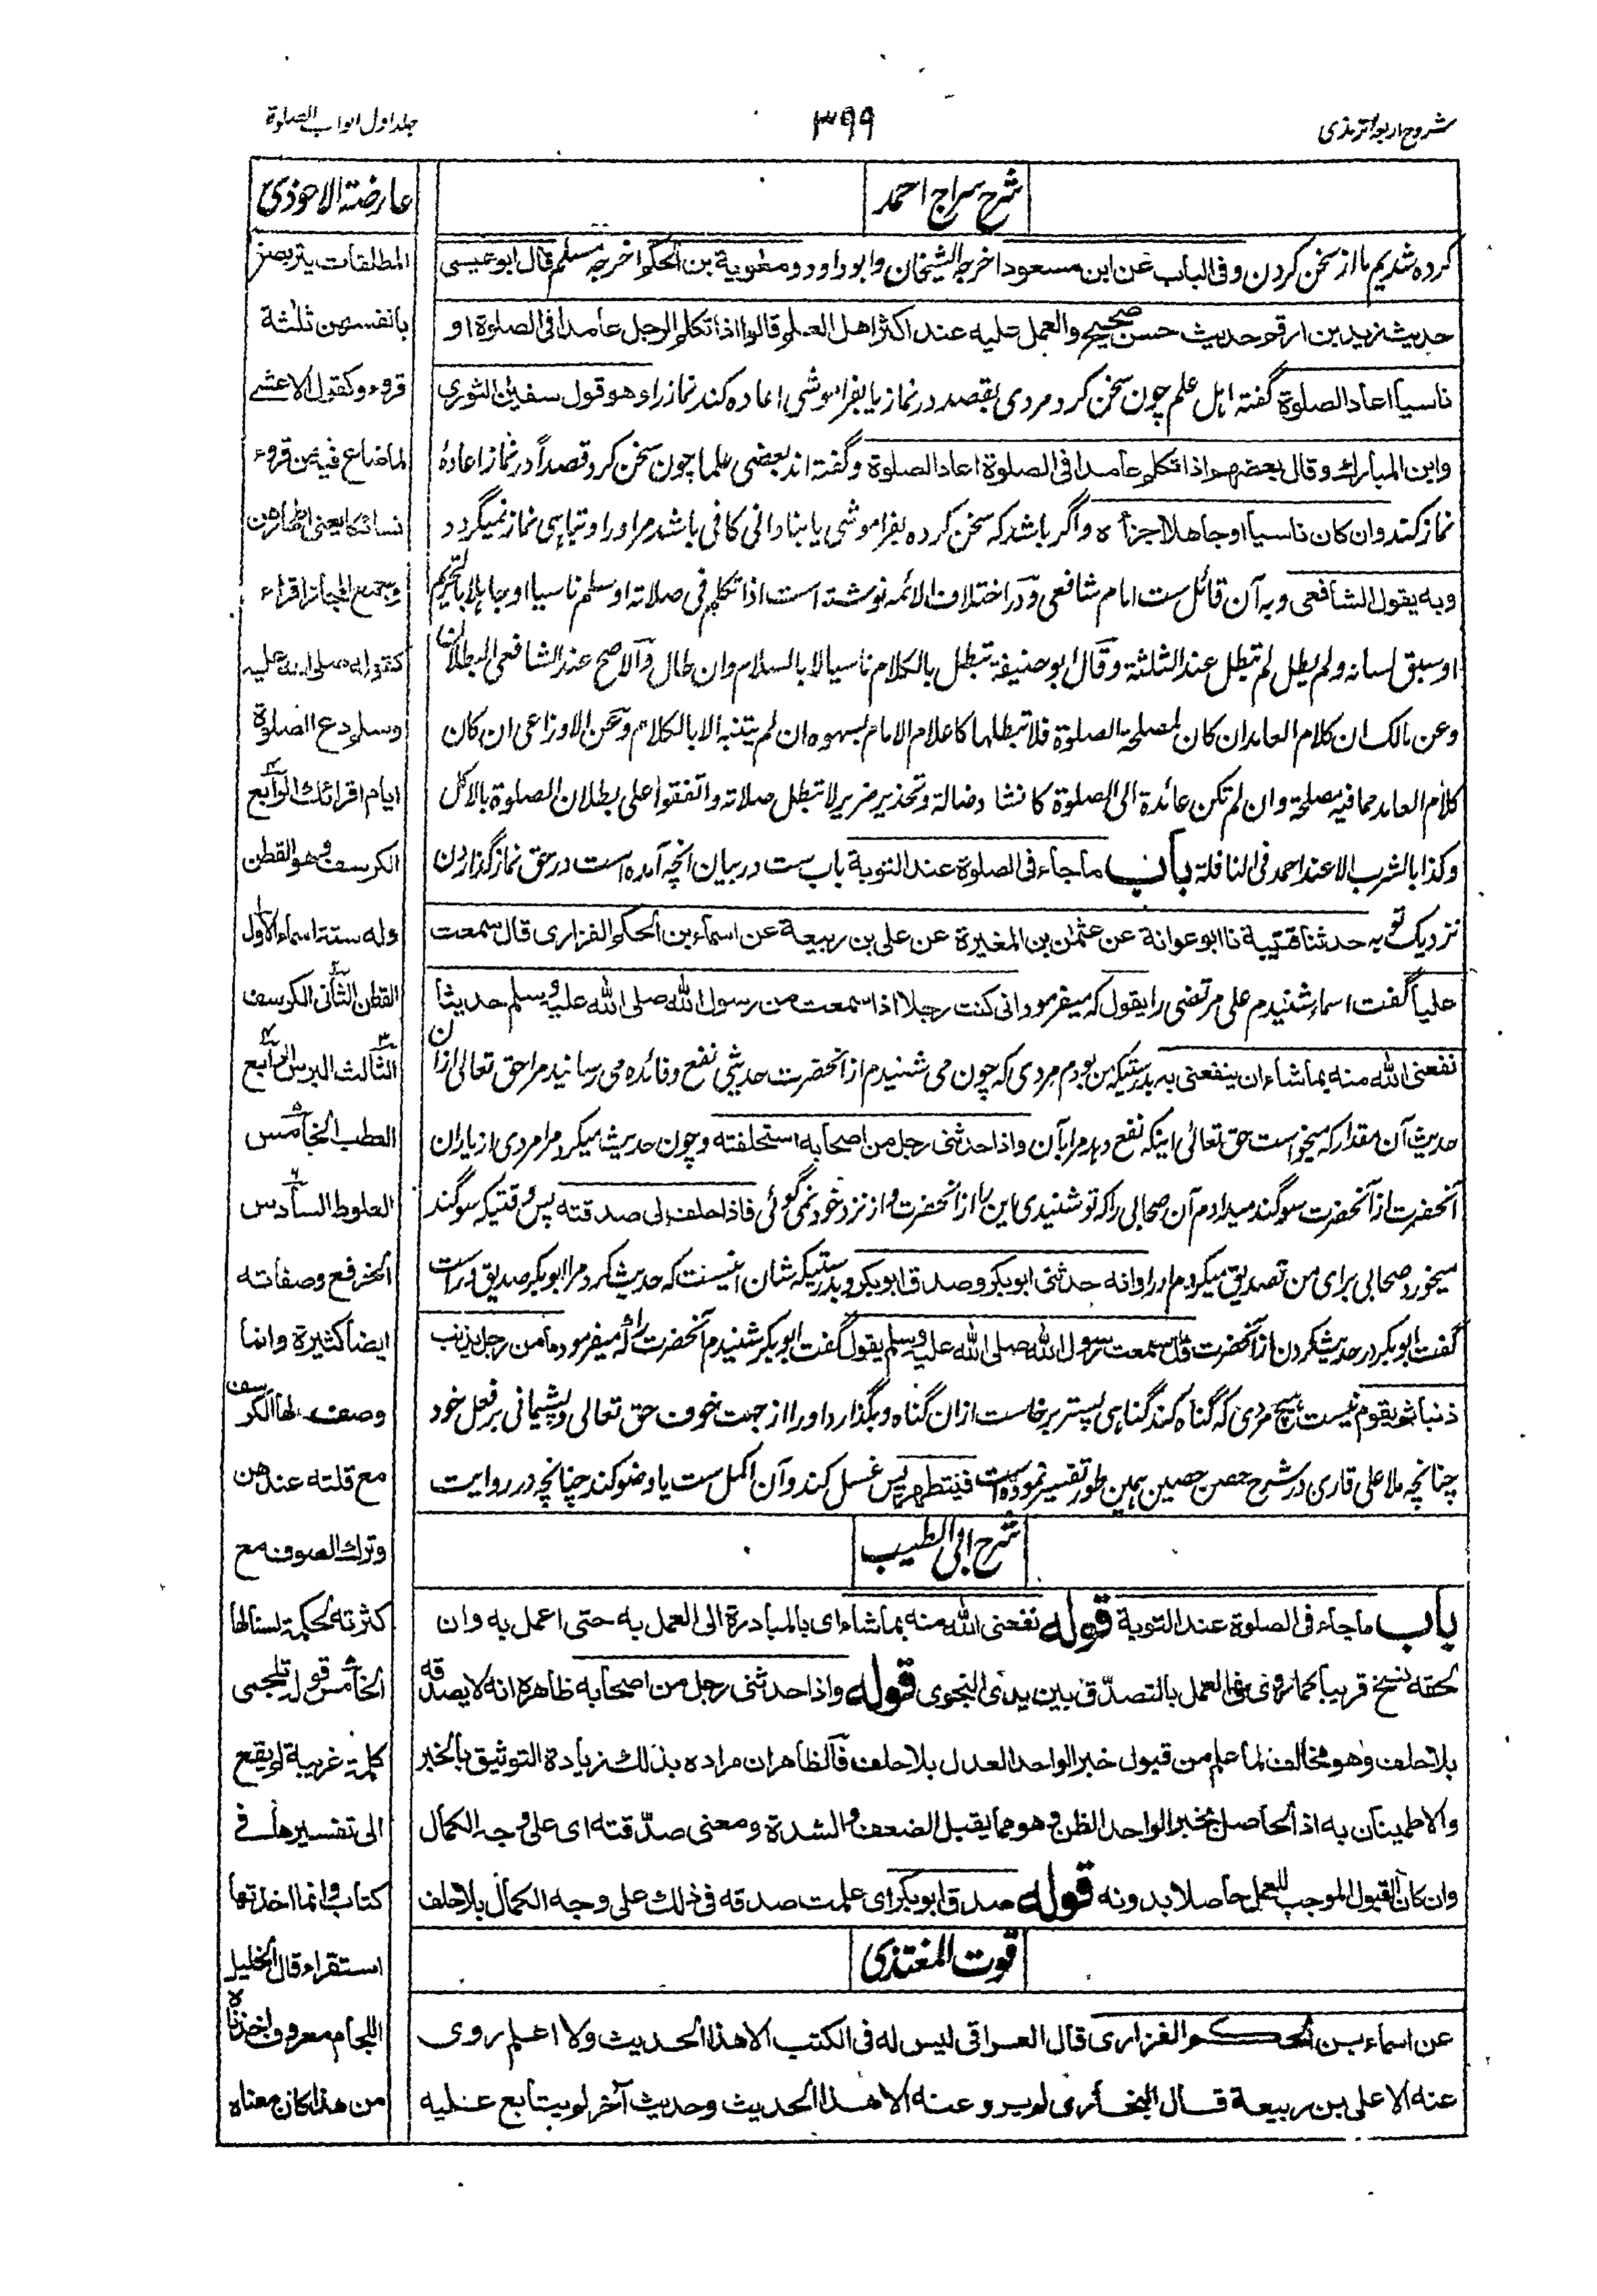 شروح اربعه ترمذی
۳۹۹
جلد اول ابواب الصلوة
شرح سراج احمد
کرده شدیم ما از سخن کردن وفی الباب عن ابن مسعود اخرجه الشیخان وابوداود ومعٰویة بن الحکم اخرجه مسلم قال ابوعیسی
حدیث زید بن ارقم حدیث حسن صحیح والعمل علیه عند اکثر اهل العلم قالوا اذا تکلم الرجل عامدا فی الصلوة او
ناسیا اعاد الصلوة گفته اہل علم چون سخن کرد مردی بقصد در نماز یا بفراموشی اعاده کند نماز را وهو قول سفیٰن الثوری
وابن المبارك وقال بعضهم اذا تکلم عامدا فی الصلوة اعاد الصلوة وگفته اند بعضی علما چون سخن کرد قصداً در نماز اعادۀ
نماز کند وان کان ناسیا او جاهلا اجزأه واگر باشد که سخن کرده بفراموشی یا بنادانی کافی باشد مر او را و تباہی نماز نمیگردد
وبه یقول الشافعی وبه آن قائل ست امام شافعی ودر اختلاف الائمه نوشته است اذا تکلم فی صلاته او سلم ناسیا او جاہلا بالتحریم
او سبق لسانه ولم یطل لم تبطل عند الثلثة وقال ابوحنیفة تبطل بالکلام ناسیا لا بالسلام وان طال فالاصح عند الشافعی البطلان
وعن مالک ان کلام العامد ان کان لمصلحة الصلوة فلا تبطلها کاعلام الامام بسهوه ان لم یتنبه الا بالکلام وعن الاوزاعی ان کان
کلام العامد مما فیه مصلحة وان لم تکن عائدة الی الصلوة کانشاد ضالة وتحذیر ضریر لا تبطل صلاته واتفقوا علی بطلان الصلوة بالاکل
وکذا بالشرب الا عند احمد فی النافلة باب ما جاء فی الصلوة عند التوبة باب ست در بیان انچه آمده است در حق نماز گذاردن
نزدیک توبه حدثنا قتیبة نا ابو عوانة عن عثمٰن بن المغیرة عن علی بن ربیعة عن اسماء بن الحکم الفزاری قال سمعت
علیا گفت اسماء شنیدم علی مرتضی را یقول که میفرمود انی کنت رجلا اذا سمعت من رسول الله صلی الله علیه وسلم حدیثا
نفعنی الله منه بما شاء ان ینفعنی به بدرستیکه من بودم مردی که چون می شنیدم از انحضرت حدیثی نفع وفائده می رسانید مرا حق تعالی ازان
حدیث آن مقدار که میخواست حق تعالی اینکه نفع دهد مرا بآن واذا حدثنی رجل من اصحابه استحلفته وچون حدیث میکرد مرا مردی از یاران
آنحضرت از آنحضرت سوگند میدادم آن صحابی را که تو شنیدی این را از انحضرت و از نزد خود نمی گوئی فاذا حلف لی صدقته پس وقتیکه سوگند
میخورد صحابی برای من تصدیق میکردم او را وانه حدثنی ابوبکر وصدق ابوبکر وبدرستیکه شان اینست که حدیث کرد مرا ابوبکر صدیق وراست
گفت ابوبکر در حدیث کردن از آنحضرت قال سمعت رسول الله صلی الله علیه وسلم یقول گفت ابوبکر شنیدم آنحضرت را که میفرمود ما من رجل یذنب
ذنبا ثم یقوم نیست ہیچ مردی که گناه کند گناہی پستر برخاست ازان گناه وبگذارد او را از جهت خوف حق تعالی وپشیمانی بر فعل خود
چنانچه ملا علی قاری در شرح حصن حصین ہمین طور تفسیر نموده است فیتطهر پس غسل کند وآن اکمل ست یا وضو کند چنانچه در روایت
شرح ابی الطیب
باب ما جاء فی الصلوة عند التوبة قوله نفعنی الله منه بما شاء ای بالمبادرة الی العمل به حتی اعمل به وان
لحقه نسخ قریبا کما روی فی العمل بالتصدق بین یدی النجوی قوله واذا حدثنی رجل من اصحابه ظاهره انه لا یصدقه
بلا حلف وهو مخالف لما علم من قبول خبر الواحد العدل بلا حلف فالظاهر ان مراده بذلك زیادة التوثیق بالخبر
والاطمینان به اذ الحاصل بخبر الواحد الظن وهو مما یقبل الضعف والشدة ومعنی صدّقته ای علی وجه الکمال
وان کان القبول الموجب للعمل حاصلا بدونه قوله صدق ابوبکر ای علمت صدقه فی ذلك علی وجه الکمال بلا حلف
قوت المغتذی
عن اسماء بن الحکم الفزاری قال العراقی لیس له فی الکتب الا هذا الحدیث ولا اعلم روی
عنه الا علی بن ربیعة قال البخاری لم یرو عنه الا هذا الحدیث وحدیث آخر لم یتابع علیه
عارضة الاحوذی
المطلقات یتربصن
بانفسهن ثلثة
قروء وکقول الاعشی
لما ضاع فیه من قروء
نسائکا یعنی اطهارهن
ویجمع الجائز اقراء
کقوله صلی الله علیه
وسلم دع الصلوة
ایام اقرائك الرابع
الکرسف وهو القطن
وله ستة اسماء الاول
القطن الثانی الکرسف
الثالث البرس الرابع
العطب الخامس
العلوط السادس
الخرفع وصفاته
ایضا کثیرة وانما
وصف لها الکرسف
مع قلته عندهن
وترك الصوف مع
کثرته لحکمة لسنا لها
الخامس قوله تلجمی
کلمة غریبة لم یقع
الی تفسیرها فی
کتاب وانما اخذتها
استقراء قال الخلیل
اللجام معروف اخذناه
من هذا کان معناه